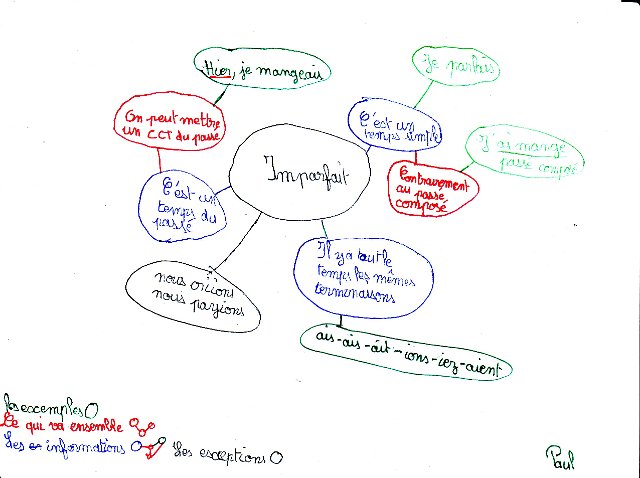 Hier, je mangeais
Je parlais
On peut mettre
un CCT du passé
C'est un
temps simple
J'ai mangé
passé composé
Imparfait
Contrairement
au passé
composé
C'est un
temps du
passé
Il y a tout le
temps les mêmes
terminaisons
nous criions
nous payions
ais-ais-ait-ions-iez-aient
les exemples
Ce qui va ensemble
Les informations
Les exceptions
Paul